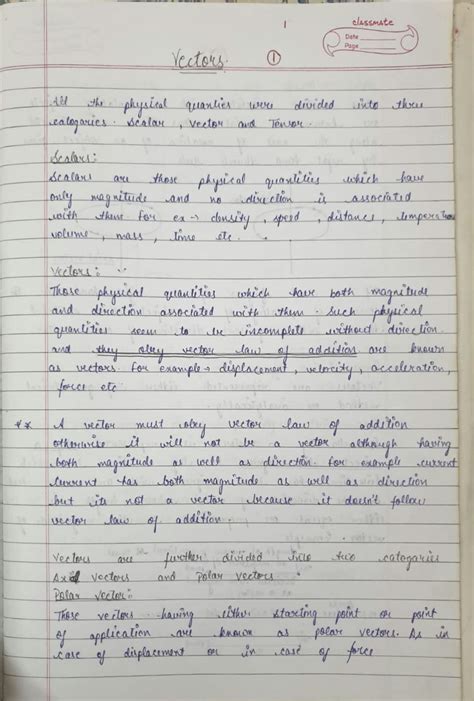 1
classmate
Date
Page
Vectors.
1
All the physical quanties were divided into three
catogaries. Scalar, Vector and Tensor.
Scalars:
Scalars are those physical quantities which have
only magnitude and no direction is associated
with them for ex → density, speed, distance, temperature
volume, mass, time etc.
Vectors:
Those physical quantities which have both magnitude
and direction associated with them. Such physical
quantities seem to be incomplete without direction.
and they obey vector law of addition are known
as vectors. For example → displacement, velocity, acceleration,
force etc
** A vector must obey vector law of addition
otherwise it will not be a vector although having
both magnitude as well as direction. For example current
current has both magnitude as well as direction
but its not a vector because it doesn't follow
vector law of addition
Vectors are further divided into two catogaries
Axial vectors and Polar vectors.
Polar vector:
Those vectors having either starting point or point
of application are known as polar vectors. As in
case of displacement or in case of force